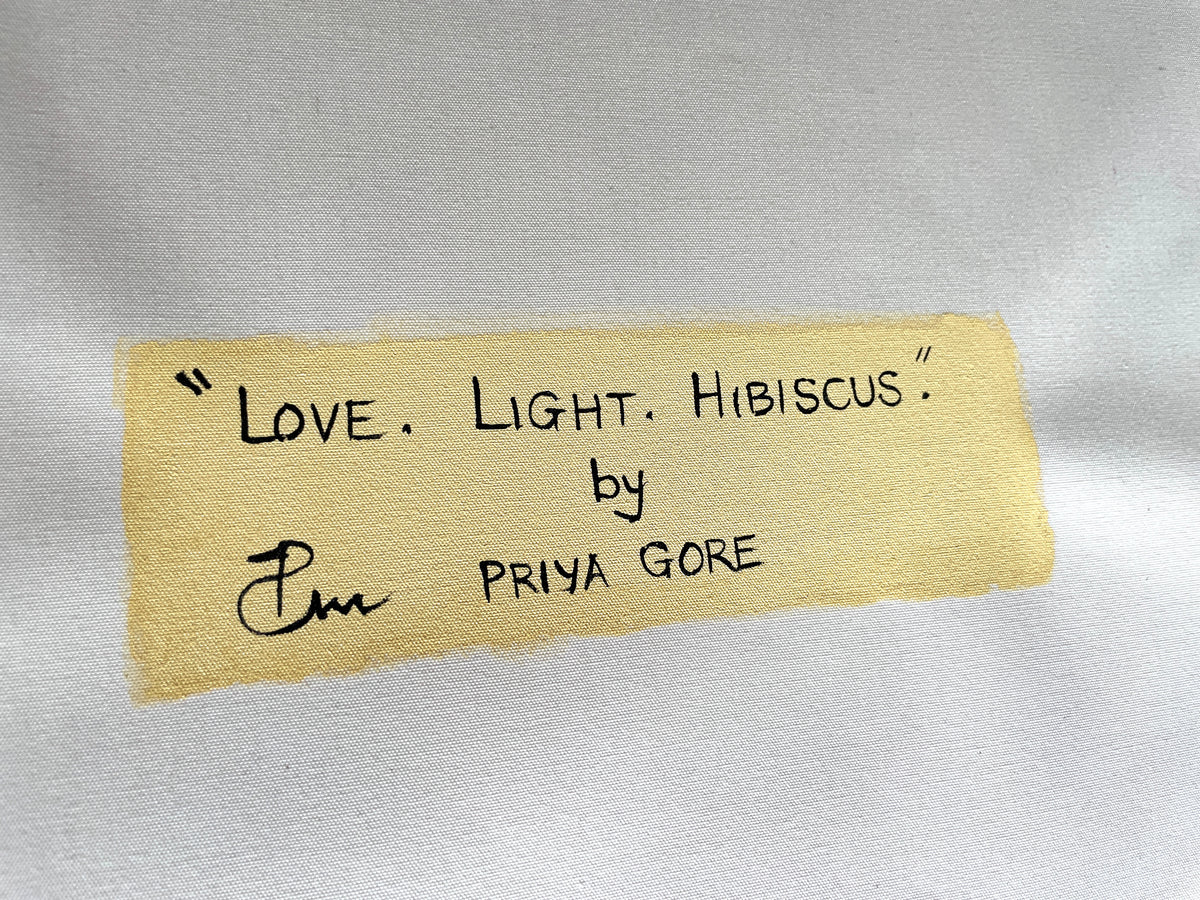 "LOVE. LIGHT. HIBISCUS."
by
PRIYA GORE